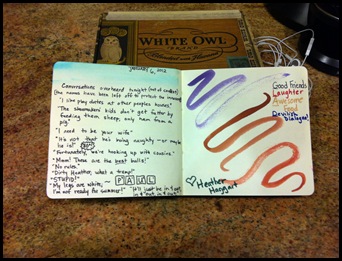 WHITE OWL
BRAND
JANUARY
6, 2012
Conversations overheard tonight (out of context)
(the names have been left off to protect the innocent)
"I like play dates at other peoples houses."
"The shoemakers kids don't get fatter by
feeding them sheep, only ham from a
pig."
"I need to be your wife"
"It's not that he's being naughty - or maybe
he is!
"Fortunately, we're hooking up with cousins."
"Mama! These are the best balls!"
"No rules."
"Dirty Heather, what a tramp!"
"STUPID!"
PAUL
"My legs are white,
I'm not ready for summer!"
"It'll just be in & out,
in & out, in & out."
Good Friends
Laughter
Awesome
Food
Devilish
Dialogue!
Heather
Haggart